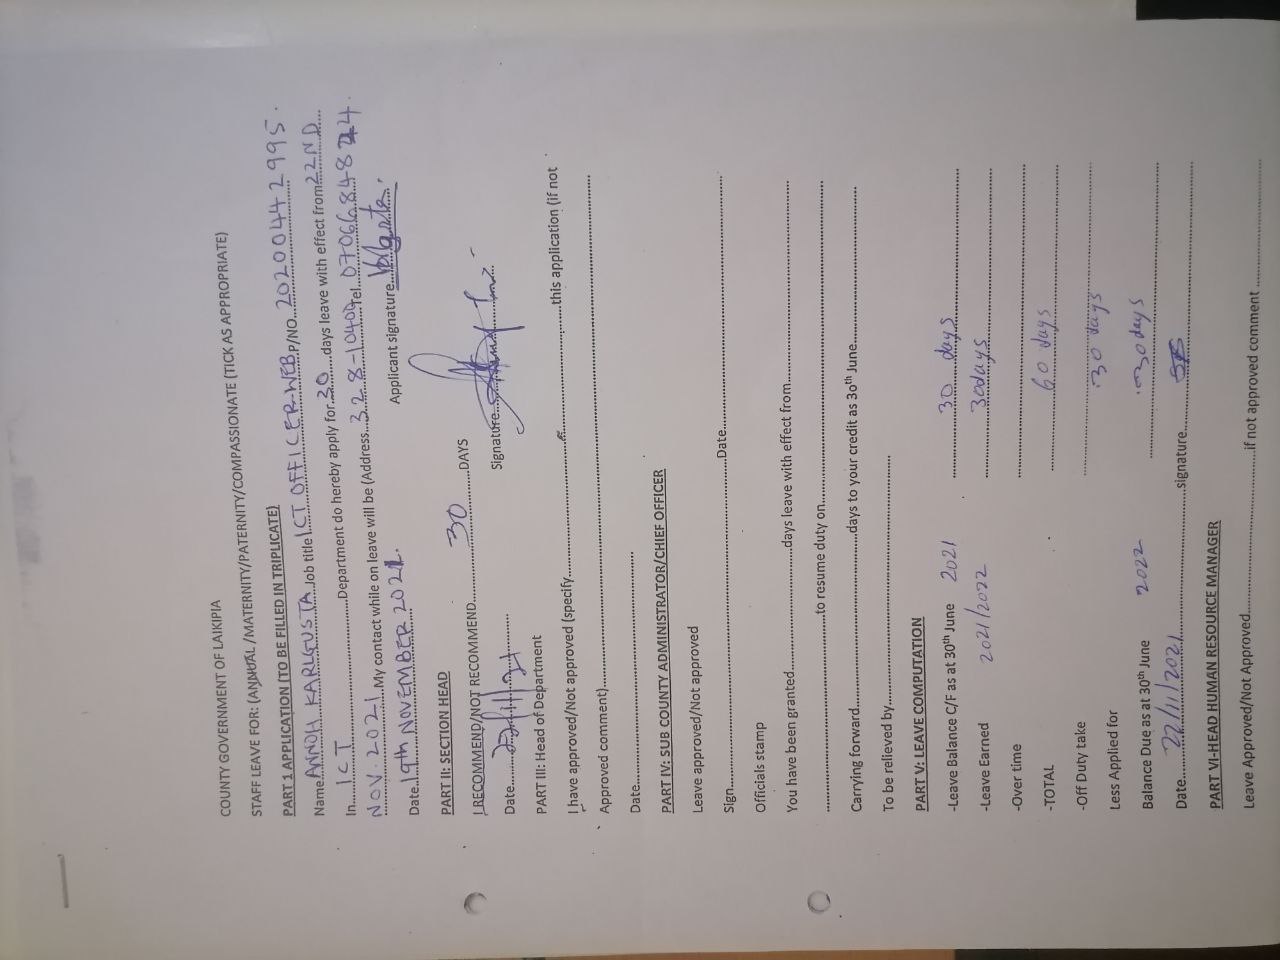 COUNTY GOVERNMENT OF LAIKIPIA
STAFF LEAVE FOR: (ANNUAL /MATERNITY/PATERNITY/COMPASSIONATE (TICK AS APPROPRIATE)
PART 1 APPLICATION (TO BE FILLED IN TRIPLICATE)
Name ANNOH KARLGUSTA Job title ICT OFFICER-WEB P/NO 20200442995.
In ICT Department do hereby apply for 30 days leave with effect from 22ND
NOV. 2021 My contact while on leave will be (Address 328-10400 Tel 0706684824.
Date 19th NOVEMBER 2021. Applicant signature
PART II: SECTION HEAD
I RECOMMEND/NOT RECOMMEND 30 DAYS
Date 22/11/21 Signature
PART III: Head of Department
I have approved/Not approved (specify this application (if not
Approved comment)
Date
PART IV: SUB COUNTY ADMINISTRATOR/CHIEF OFFICER
Leave approved/Not approved
Sign Date
Officials stamp
You have been granted days leave with effect from
to resume duty on
Carrying forward days to your credit as 3oth June
To be relieved by
PART V: LEAVE COMPUTATION
-Leave Balance C/F as at 30th June 2021 30 days
-Leave Earned 2021/2022 30days
-Over time
-TOTAL 60 days
-Off Duty take
Less Applied for 30 days
Balance Due as at 30th June 2022 30 days
Date 22/11/2021 signature
PART VI-HEAD HUMAN RESOURCE MANAGER
Leave Approved/Not Approved if not approved comment